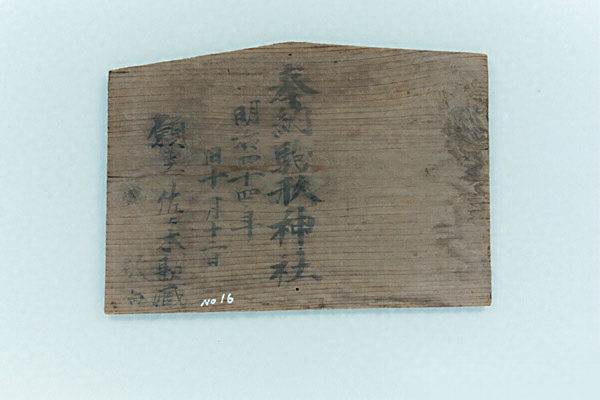 奉納駒形神社
明治四十四年
旧十月十二日
願主 佐々木勘蔵
No 16